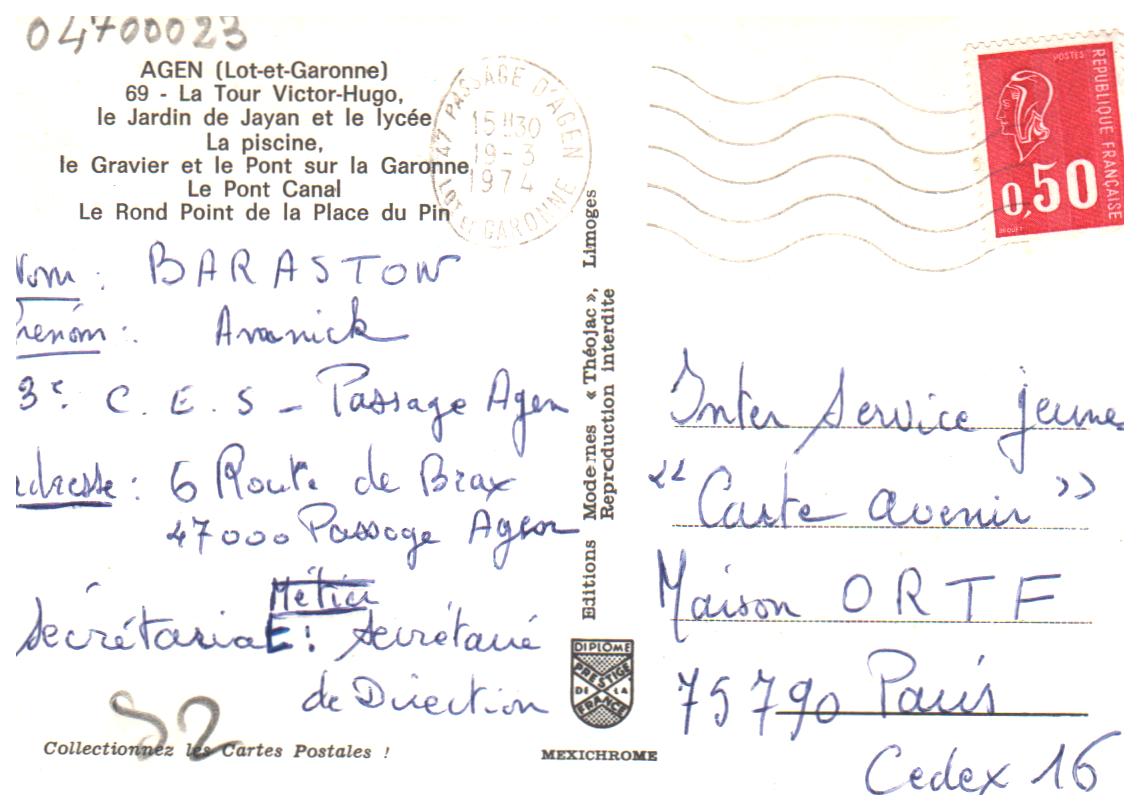 04700023
AGEN (Lot-et-Garonne)
69 - La Tour Victor-Hugo,
le Jardin de Jayan et le lycée
La piscine,
le Gravier et le Pont sur la Garonne
Le Pont Canal
Le Rond Point de la Place du Pin
47 PASSAGE D'AGEN
15H30
19-3
1974
LOT ET GARONNE
POSTES
REPUBLIQUE FRANÇAISE
0,50
BEQUET
Nom : BARASTON
Prénom : Annick
3e C.E.S - Passage Agen
Adresse : 6 Route de Brax
47000 Passage Agen
Métier
Secrétariat : Secrétaire
de Direction
82
Collectionnez les Cartes Postales !
Editions Modernes « Théojac », Limoges
Reproduction interdite
DIPLOME
PRESTIGE
DE LA
FRANCE
MEXICHROME
Inter Service jeunes
"Carte avenir"
Maison ORTF
75790 Paris
Cedex 16